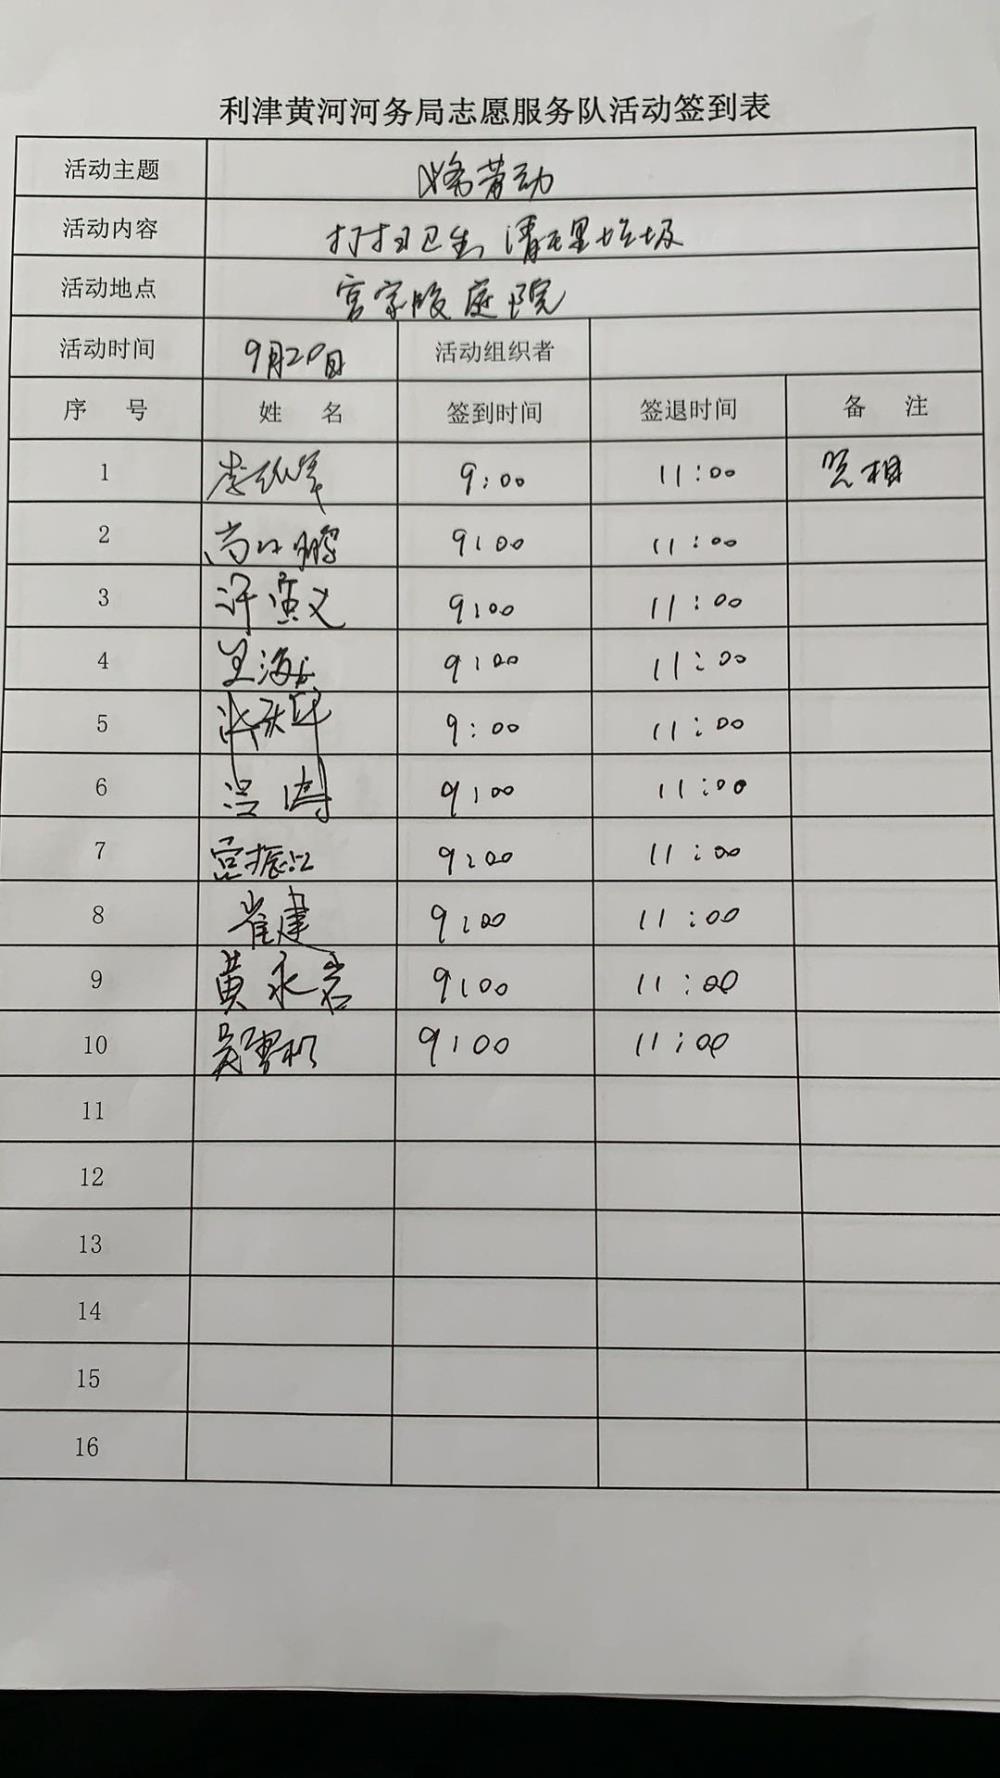 利津黄河河务局志愿服务队活动签到表
活动主题 义务劳动
活动内容 打扫卫生 清理垃圾
活动地点 宫家段庭院
活动时间 9月20日 活动组织者
序号 姓名 签到时间 签退时间 备注
1 9:00 11:00 照相
2 9:00 11:00
3 9:00 11:00
4 9:00 11:00
5 9:00 11:00
6 9:00 11:00
7 宫振江 9:00 11:00
8 崔建 9:00 11:00
9 黄永岩 9:00 11:00
10 9:00 11:00
11
12
13
14
15
16